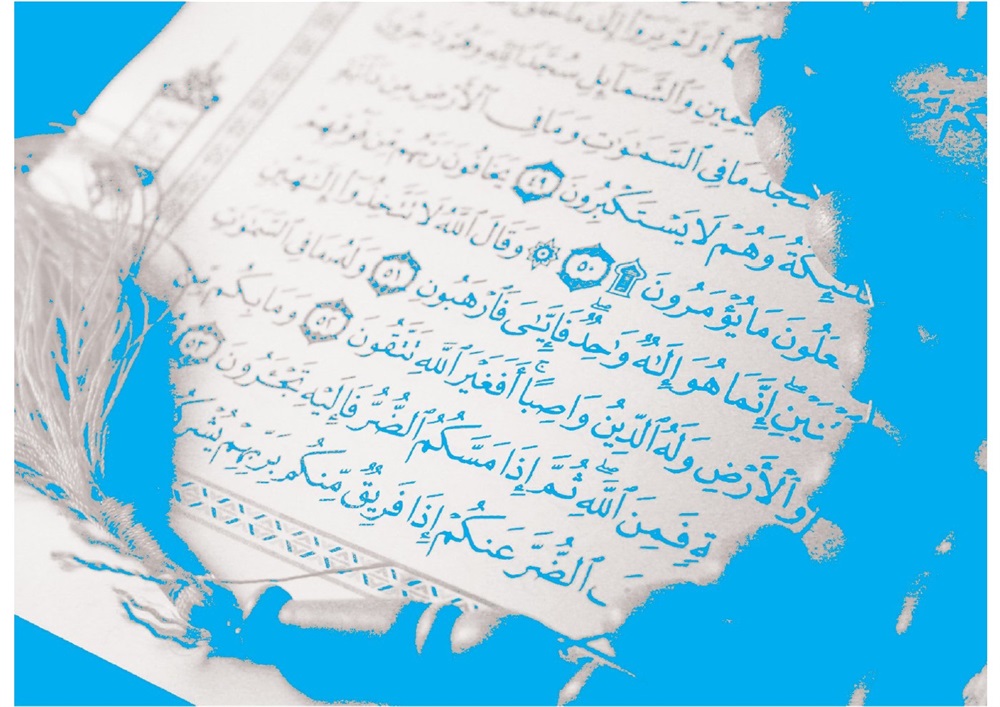 أَوَلَمْ يَرَوْا۟ إِلَىٰ مَا خَلَقَ
يَمِينِ وَٱلشَّمَآئِلِ سُجَّدًا لِّلَّهِ وَهُمْ دَٰخِرُونَ
سْجُدُ مَا فِى ٱلسَّمَٰوَٰتِ وَمَا فِى ٱلْأَرْضِ مِن دَآبَّةٍ
ـئِكَةُ وَهُمْ لَا يَسْتَكْبِرُونَ ٤٩ يَخَافُونَ رَبَّهُم مِّن فَوْقِهِمْ
ـعَلُونَ مَا يُؤْمَرُونَ ۩ ٥٠ ۞ وَقَالَ ٱللَّهُ لَا تَتَّخِذُوٓا۟ إِلَٰهَيْنِ
ـنَيْنِ ۖ إِنَّمَا هُوَ إِلَٰهٌ وَٰحِدٌ ۖ فَإِيَّٰىَ فَٱرْهَبُونِ ٥١ وَلَهُۥ مَا فِى ٱلسَّمَٰوَٰتِ
وَٱلْأَرْضِ وَلَهُ ٱلدِّينُ وَاصِبًا ۚ أَفَغَيْرَ ٱللَّهِ تَتَّقُونَ ٥٢ وَمَا بِكُم مِّن
ـةٍ فَمِنَ ٱللَّهِ ۖ ثُمَّ إِذَا مَسَّكُمُ ٱلضُّرُّ فَإِلَيْهِ تَجْـَٔرُونَ ٥٣
ٱلضُّرَّ عَنكُمْ إِذَا فَرِيقٌ مِّنكُم بِرَبِّهِمْ يُشْرِكُ